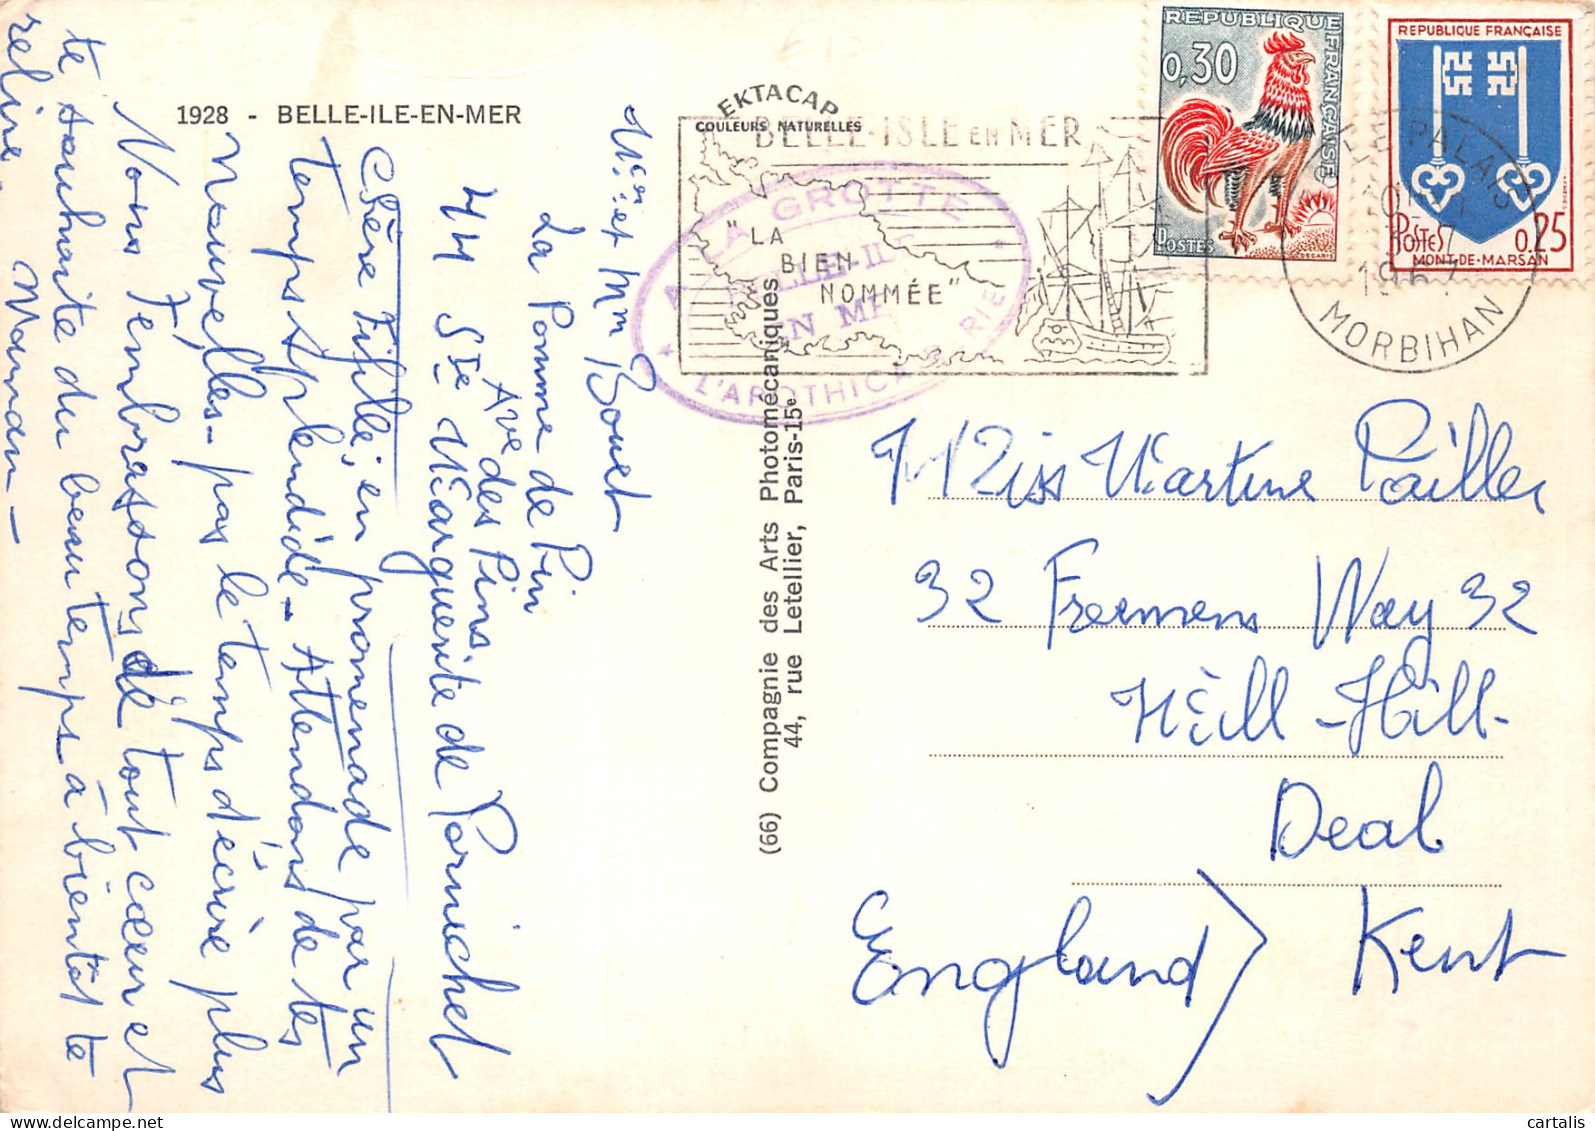 1928 - BELLE-ILE-EN-MER
EKTACAP
COULEURS NATURELLES
Mr et Mm Bouet
La Pomme de Pin
Ave des Pins
44 Ste Marguerite de Pornichet
Chère Fifille, en promenade par un
temps splendide - Attendons de tes
nouvelles - pas le temps d'écrire plus
Nous t'embrassons de tout cœur et
te souhaite du beau temps à bientôt te
relire. Maman -
(66) Compagnie des Arts Photomécaniques
44, rue Letellier, Paris-15e
BELLE-ISLE EN MER
"LA
BIEN
NOMMÉE"
A LA GROTTE
BELLE-ILE
EN MER
L'APOTHICAIRERIE
REPUBLIQUE FRANÇAISE
0,30
POSTES
DECARIS
REPUBLIQUE FRANÇAISE
Postes 0.25
MONT-DE-MARSAN
LE PALAIS
1967
MORBIHAN
Miss Martine Pailler
32 Freemens Way 32
Mill-Hill-
Deal
Kent
England